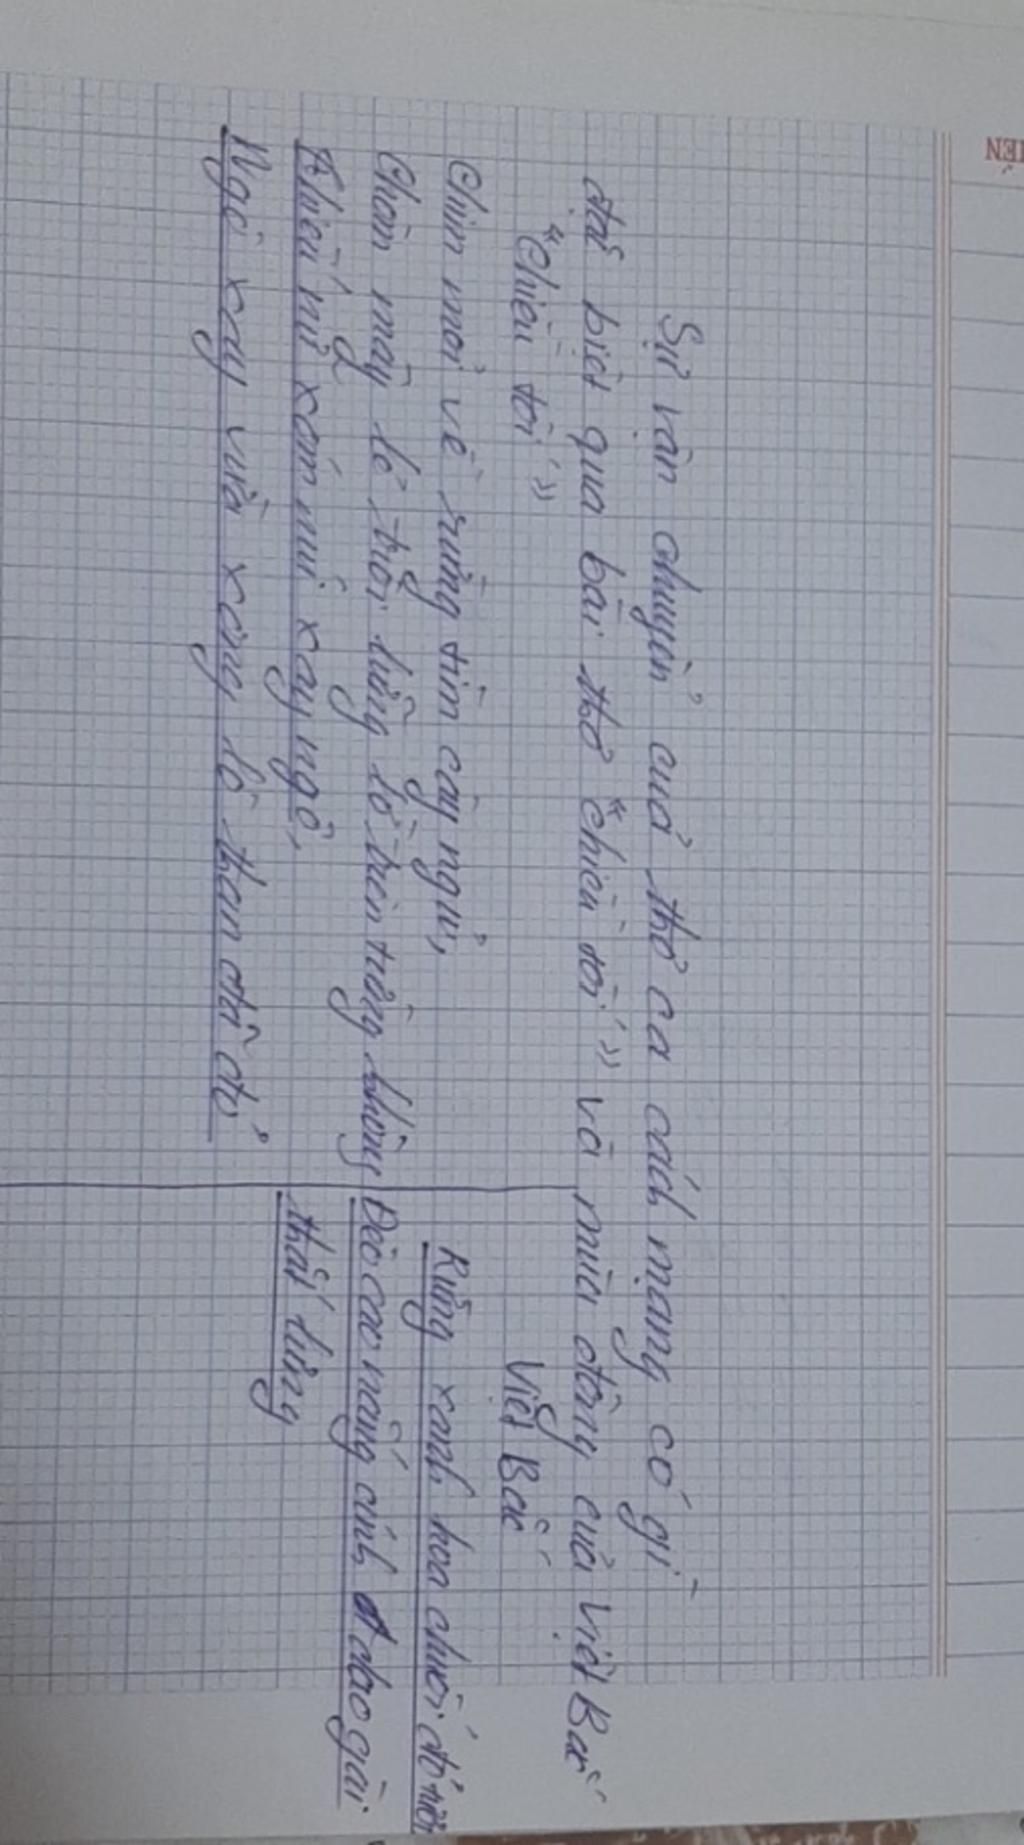 IÊN
Sự vận chuyển của thơ ca cách mạng có gì
đặc biệt qua bài thơ "Chiều tối" và mùa đông của Việt Bắc
"Chiều tối"
Chim mỏi về rừng tìm cây ngủ,
Chòm mây lẻ trôi lững lờ trên từng không
Thiếu nữ xóm núi xay ngô,
Ngô xay vừa xong, lò than đã đỏ
Việt Bắc
Rừng xanh hoa chuối đỏ tươi
Đèo cao nắng ánh dao gài
thắt lưng